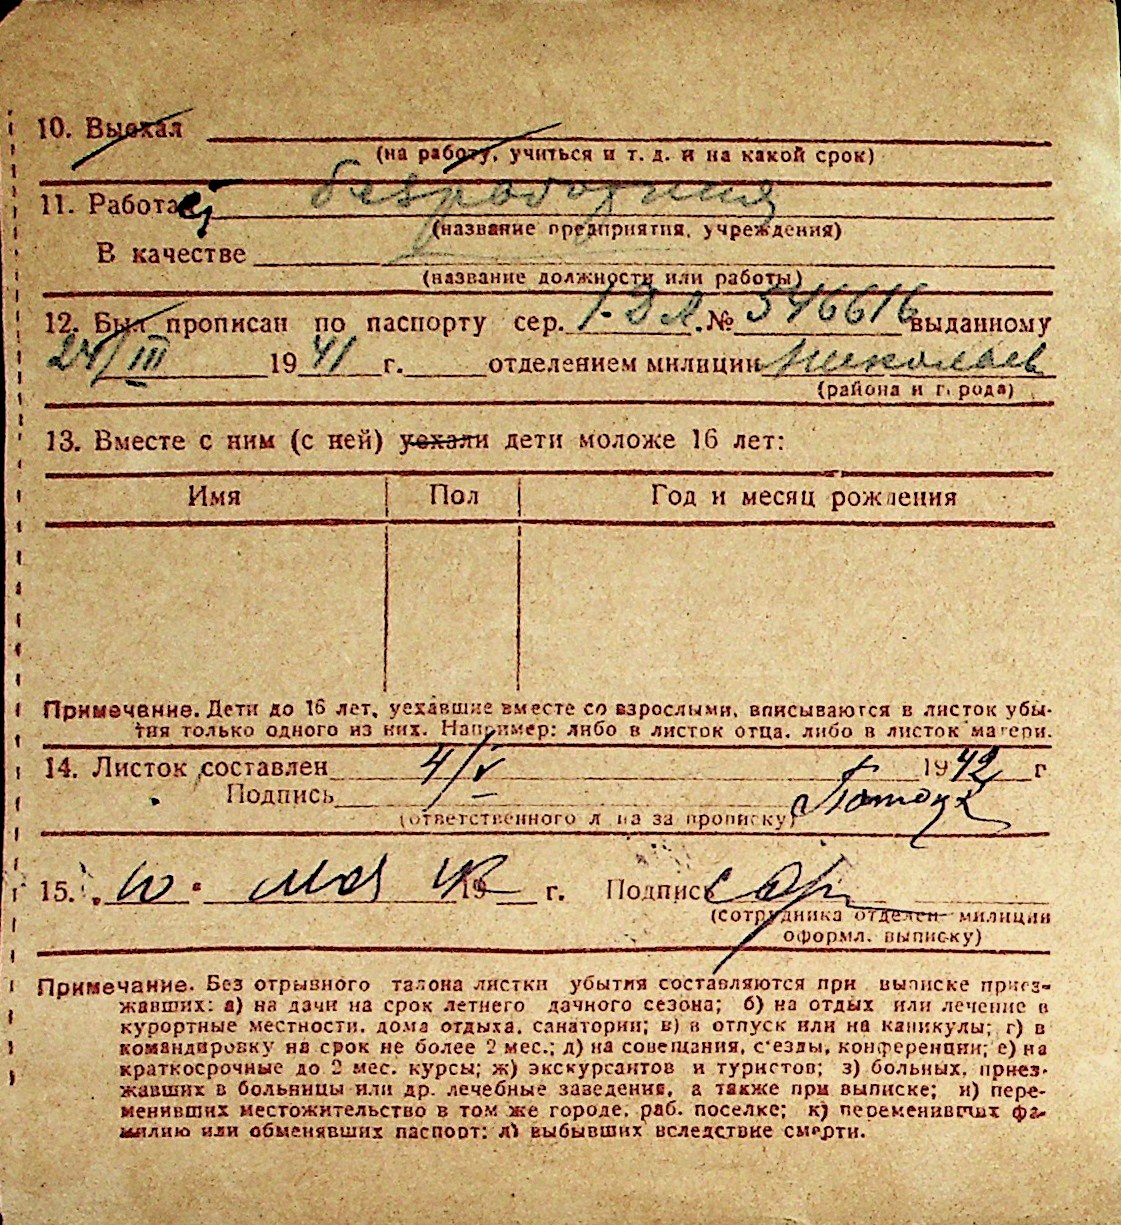 10. Выехал
(на работу, учиться и т. д. и на какой срок)
11. Работает безработная
(название предприятия, учреждения)
В качестве
(название должности или работы)
12. Был прописан по паспорту сер. № 546616 выданному
24/III 1941 г. отделением милиции Николаев
(района и города)
13. Вместе с ним (с ней) уехали дети моложе 16 лет:
Имя Пол Год и месяц рождения
Примечание. Дети до 16 лет, уехавшие вместе со взрослыми, вписываются в листок убы-
тия только одного из них. Например: либо в листок отца, либо в листок матери.
14. Листок составлен 4/V 1942 г
Подпись
(ответственного лица за прописку)
15. 10 мая 1942 г. Подпись
(сотрудника отделен- милиции
оформл. выписку)
Примечание. Без отрывного талона листки убытия составляются при выписке приез-
жавших: а) на дачи на срок летнего дачного сезона; б) на отдых или лечение в
курортные местности, дома отдыха, санатории; в) в отпуск или на каникулы; г) в
командировку на срок не более 2 мес.; д) на совещания, с'езды, конференции; е) на
краткосрочные до 2 мес. курсы; ж) экскурсантов и туристов; з) больных, приез-
жавших в больницы или др. лечебные заведения, а также при выписке; и) пере-
менивших местожительство в том же городе, раб. поселке; к) переменивших фа-
милию или обменявших паспорт; л) выбывших вследствие смерти.